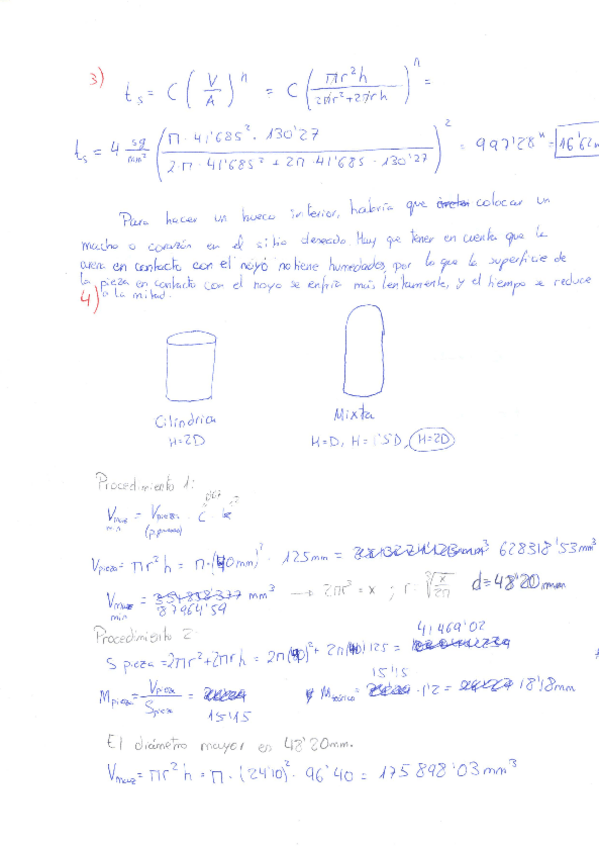 3) ts = C (V/A)^n = C (πr²h / 2πr²+2πrh)^n =
ts = 4 sg/mm² (π·41'685²·130'27 / 2·π·41'685² + 2π·41'685·130'27)² = 997'28" = 16'62
Para hacer un hueco interior, habría que colocar un
macho o corazón en el sitio deseado. Hay que tener en cuenta que la
arena en contacto con el noyo no tiene humedades, por lo que la superficie de
la pieza en contacto con el noyo se enfría más lentamente, y el tiempo se reduce
a la mitad.
4)
Cilíndrica Mixta
H=2D H=D, H=1'5D, H=2D
Procedimiento 1:
Vmaz min = Vpieza (p.gruesa) · C ·
Vpieza = πr²h = π·(40mm)²·125mm = 628318'53mm³
Vmaz min = 87964'59 mm³ → 2πr³ = x ; r = ∛(x/2π) d=48'20mm
Procedimiento 2:
S pieza = 2πr²+2πrh = 2π(40)²+2π(40)125 = 41469'02
Mpieza = Vpieza/Spieza = 15'15 15'15 · 1'2 = 18'18mm
El diámetro mayor es 48'20mm.
Vmaz = πr²h = π·(24'10)²·96'40 = 175898'03mm³